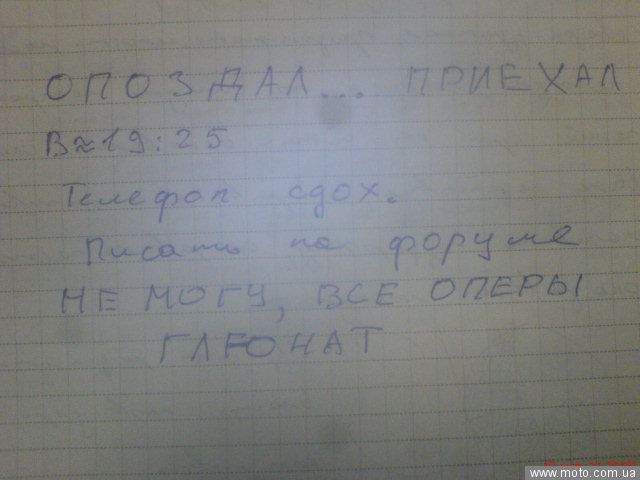 ОПОЗДАЛ... ПРИЕХАЛ
В≈19:25
Телефон сдох.
Писать на форуме
НЕ МОГУ, ВСЕ ОПЕРЫ
ГЛЮНАТ
www.moto.com.ua